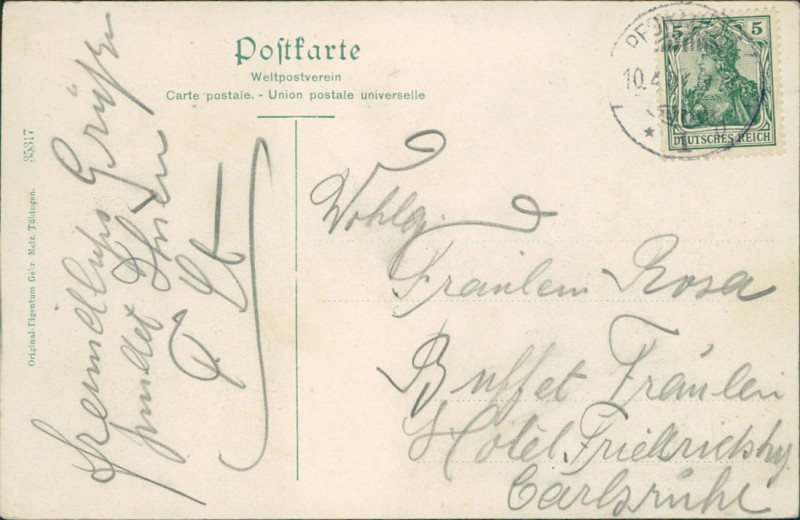 Postkarte
Weltpostverein
Carte postale. - Union postale universelle
35317
Original-Eigentum Gebr. Metz, Tübingen.
5 5
DEUTSCHES REICH
10.4
Freundliche Grüße
sendet Ihnen
Wohlg.
Fräulein Rosa
Buffet Fräulein
Hotel Friedrichshof
Carlsruhe